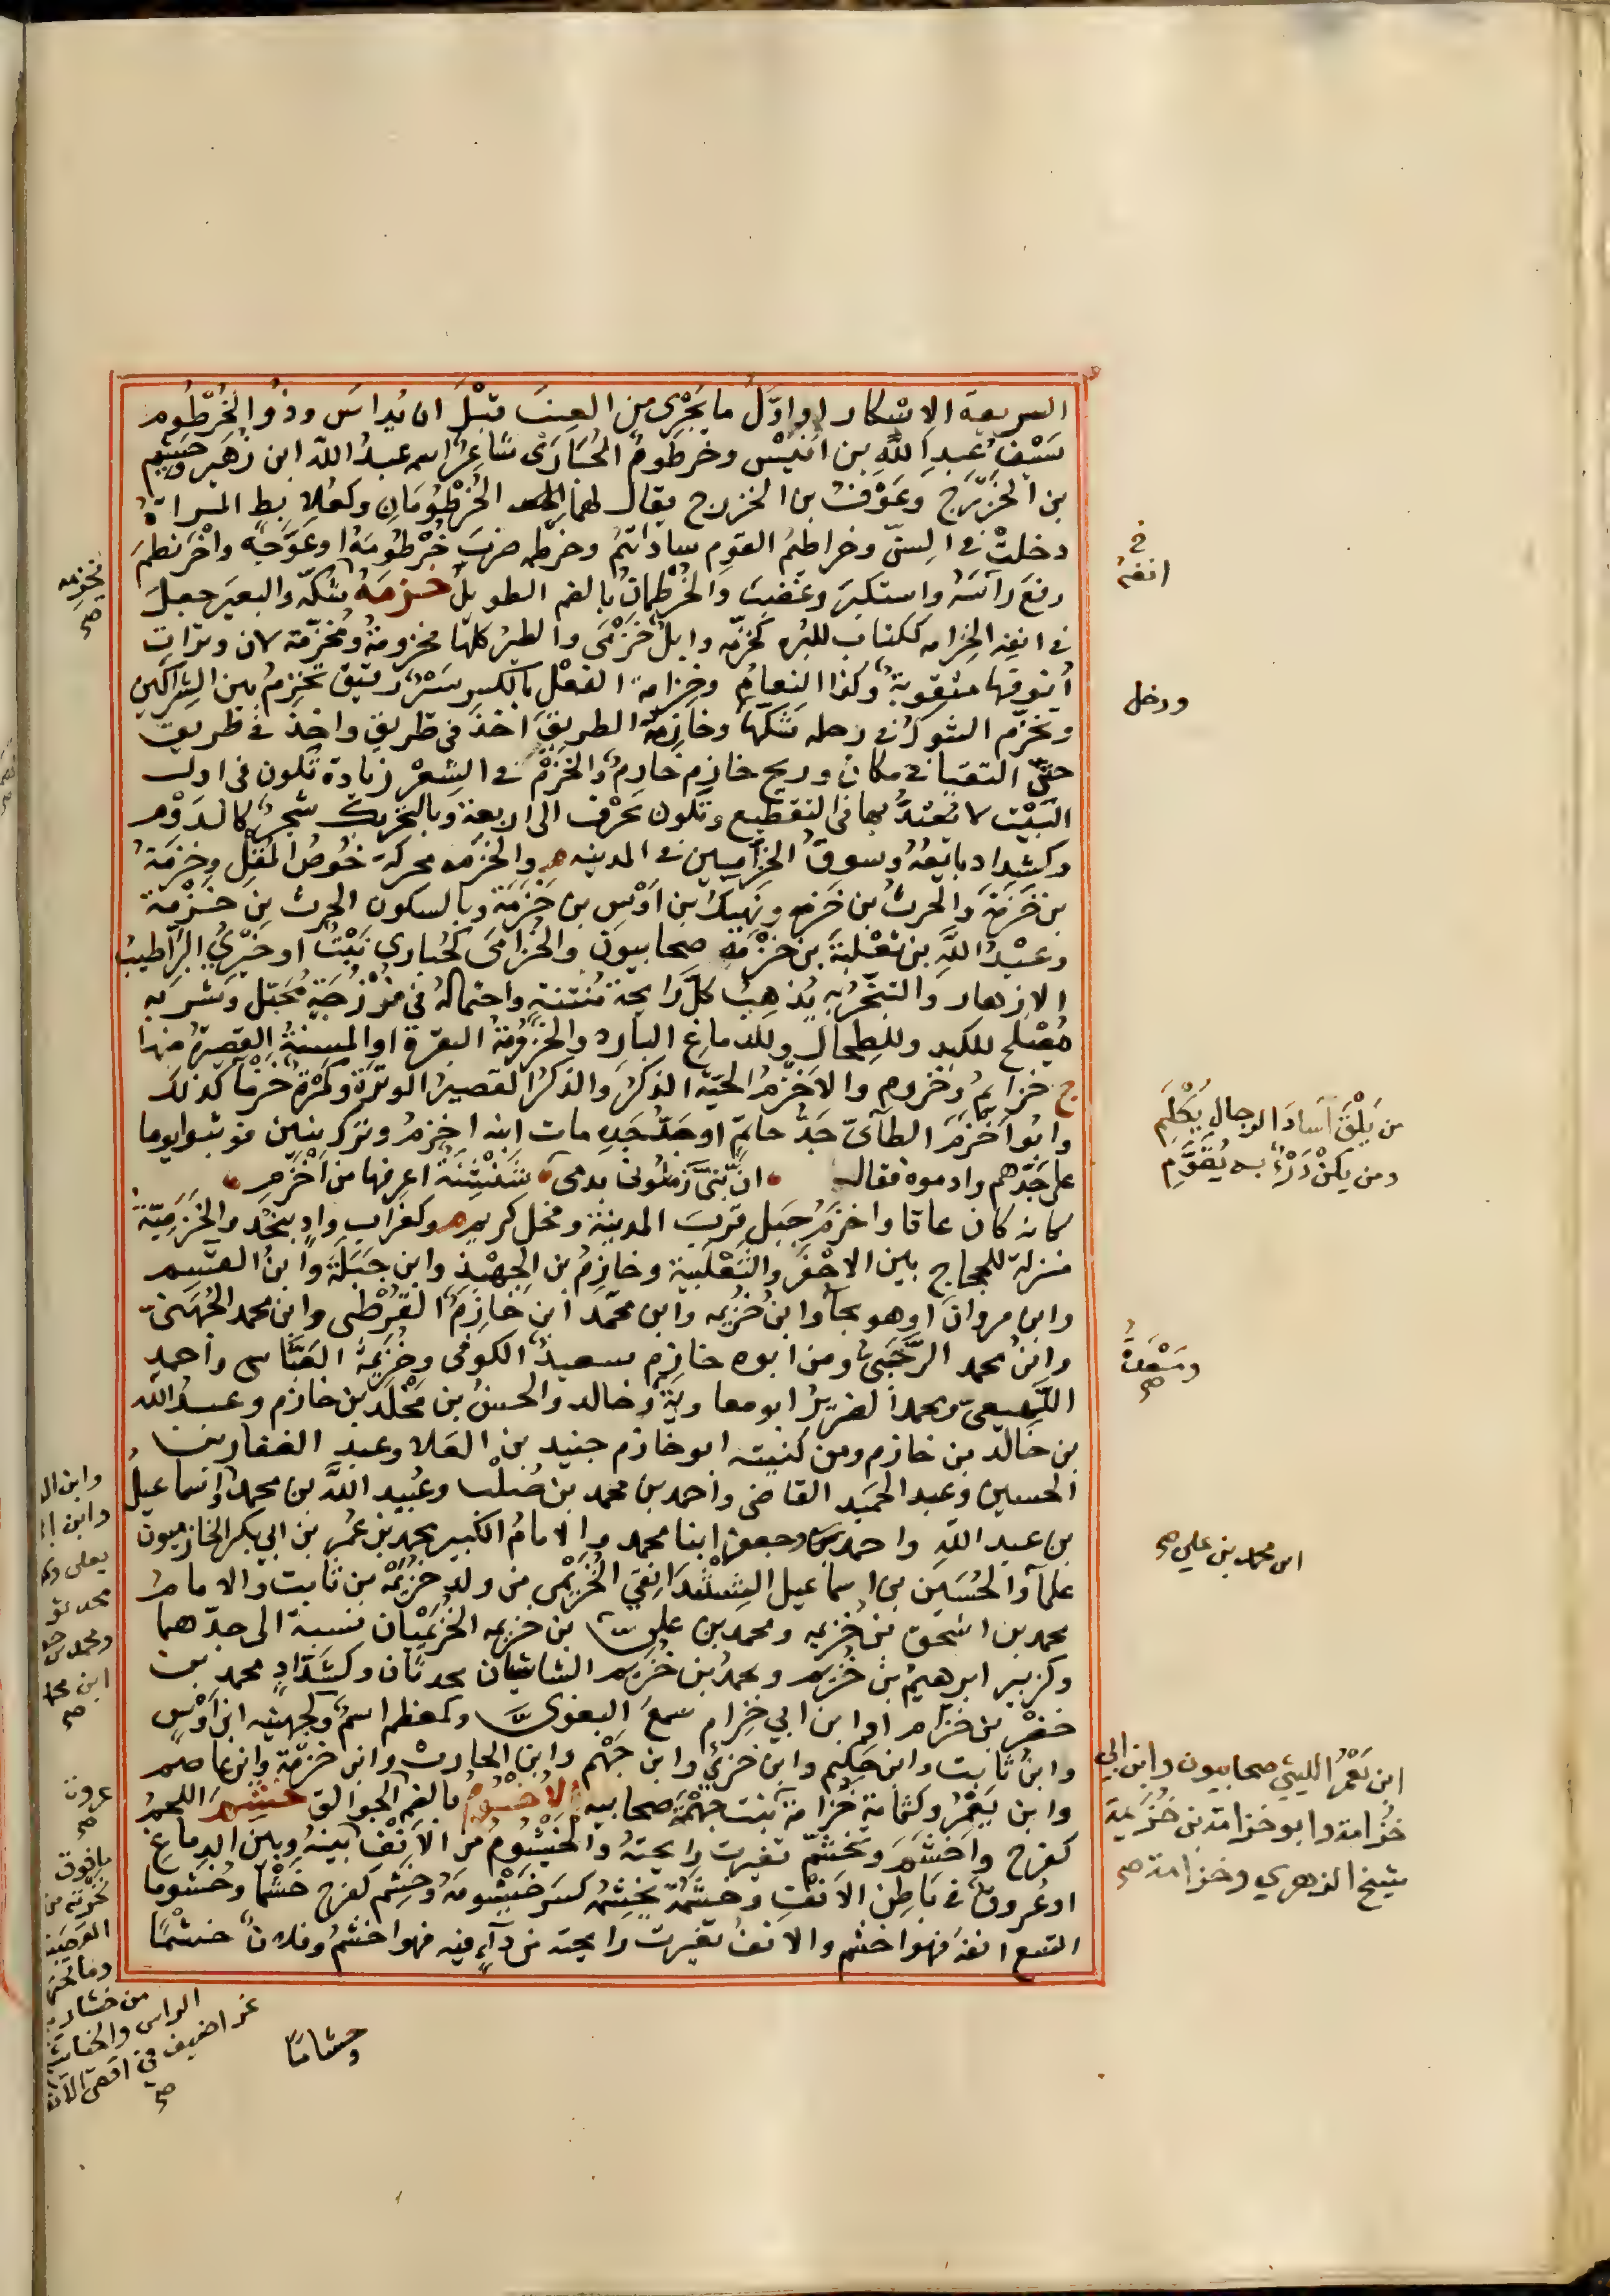 السريعة الاسكار او اوّل ما يَجْرِى من العِنَب قبْلَ ان يُداسَ وذُو الخُرْطُوم
سَيْفُ عَبدِ اللّه بن اُنَيْس وخرطومُ الحُبَارَى شاعِرٌ اسمه عبدُ اللّه ابن زُهَير وجُشَم
بن الخَزْرَج وعَوْفُ بن الخزرج يقال لهما الخُرْطُومَانِ وكعُلابط المراة
دخلتْ فى السِنّ وخراطيمُ القوم ساداتهُم وخرطمه ضربَ خُرْطُومَهُ او عَوَّجَهُ واخْرَنْطمَ
رفعَ رأسَهُ واستكبرَ وغَضِبَ والخُرْطُمانُ بالضم الطويلُ خزمَهُ شكّه والبعيرَ جعلَ
فى انفِه الخِزامه ككتاب للبُره كخزّمه وابلٌ خَزْمَى والطيرُ كلها مخزومةٌ ومُخزّمة لان وترات
أنوفها مثقوبةٌ وكذا النعامُ وخِزامة النعْلِ بالكسر سَيْرٌ رقيق يخزِمُ بين الشراكين
وتخزّم الشوكُ فى رجله شكّها وخازمهُ الطريقَ اخذ فى طريق واخذ فى طريق
حتّى التقيا فى مكان وريح خازِم خارِمٌ والخَزْمُ فى الشِعْر زيادة تكون فى اول
البَيْت لا يُعتدُّ بها فى التقطيع وتكون بحَرْف الى اربعة وبالتحريك شجرٌ كالدَوْم
وكشداد بائعهُ وسوقُ الخزّامِيين فى المدينه م والخزمه محركة خُوصُ المُقْلِ وخزمَةُ
بن خَزَمَة والحرثُ بن خَزمه ونَهِيكُ بن اَوْسِ بن خَزَمَة وبالسكون الحرث بن خَزْمة
وعبْدُ اللّهِ بن ثعْلبةَ بن خزْمَه صحابيون والخُزامَى كحُبارى نَبْتٌ او خِيْرِىُّ البَرِّ اطيبُ
الازهار والتبخّرُ به يُذهِبُ كلَّ رايحة مُنتنةٍ واحتمالهُ فى فُرْزُجَةٍ مُحبّل وشربه
مُصْلح للكبد وللطِحال وللدماغ البارد والخَزُومَةُ البقرة او المُسنةُ القصيرة منها
ج خزايمُ وخزوم والاَخْزَمُ الحيّة الذكرُ والذكرُ القصيرُ الوترة وكَمَرةٌ خزماء كذلك
وابُو اَخْزَمَ الطآئىّ جَدُّ حاتِمٍ او جَدُّ جَدِه مات ابنه اخزمُ وترك بنين فوثبوا يوما
على جَدِّهم وادموه فقال • انّ بَنِىَّ زَمّلُونى بدمى • شَنْشِنَةٌ اعرفها من اَخْزَم •
كانه كان عاقا واخزَمُ جبل قربَ المدينة وفحل كريم م وكغراب وادٍ بنجْد والخُزَيميّة
منزلة للحجاج بين الاجْفَر والثعْلَبية وخازِمُ بن الجهْبَذ وابن جَبَلة وابنُ القسم
وابن مروان او هو بحآ وابن خُزَيمه وابن محمّد ابن خازِمَ القُرْطبى وابن محمد الجُهَنىّ
وابن محمد الرَحَبىّ ومن ابوه خازم سعيدٌ الكوفى وخُزَيْمةُ العَبّاسى واحمد
اللَهيعىّ ومحمدٌ الضرير ابو معاوية وخالد والحسنُ بن مَخْلد بن خازم وعبدُ اللّه
بن خالد بن خازم ومن كنيته ابو خازم جنيد بن العَلا وعبد الغفار بن
الحسين وعبد الحميد القاضى واحمد بن محمد بن صُلْب وعُبيد اللّه بن محمد وإسماعيلُ
بن عبد اللّهِ واحمد وجعفر ابنا محمد والامامُ الكبير محمد بن عُمر بن ابى بكر الخازميون
علمآ والحُسَين بن اسماعيل الخُزَيمى من ولد خُزَيْمَة بن ثابت والامامُ
محمد بن اسْحق بن خُزيمه ومحمد بن على بن خزيمه الخُزَيْمِيّان نسبة الى جدّهما
وكزبير ابرهيمُ بن خُزيم ومحمدُ بن خُزيم الشاشيان محدثان وكشَدّاد محمد بن
خضْر بن خَزّام او ابن ابى خِزام سمعَ البغوىَّ وكمعظم اسمٌ وكجهينه ابن اَوْسٍ
وابنُ ثابت وابن حكيم وابن خَزَىّ وابن جَهْم وابن الحارث وابن خزمَة وابن عاصم
وابن يَعْمُرَ وكثمامة خُزامةُ بنت جَهْمَة صحابيه الاُخْسُوم بالضم الجوالق خشم اللحمُ
كفرح واَخشَمَ وتَخشّم تغيرت رايحتهُ والخَيْشُومُ من الاَنْفِ بينهُ وبينَ الدماغ
او عُروقٌ فى بَاطِن الاَنْفِ وخشَمَهُ يخشِمُه كَسَر خَيْشُومَهُ وخَشِم كفرح خَشَمًا وخُشوما
اتسع انفهُ فهو اخشم والانفُ تغيرت رايحته من دآءٍ فيه فهو اخشمُ وفلانٌ خشْمًا
وخشاما
فى
انفهُ
ودخل
من يَلْقَ آسادَ الرجالِ يُكْلَمِ
ومن يكنْ دَرْءٌ به يُقَوَّمِ
ومَسْعدةُ صح
ابن محمد بن على صح
ابن يَعْمُرَ الليثى صحابيون وابن ابى
خُزامة وابو خزامة بن خُزَيمة
شيخ الزهري وخزامة صح
يخزِمه
صح
وابن
وابن
يعلى
محمد
ومحمد بن
ابن
صح
عروة
صح
ما فوق
نخرته من
القصبة
وما تحتها
من خشارم
الراس والخياشيم
غراضيف فى اقصى الانف
صح